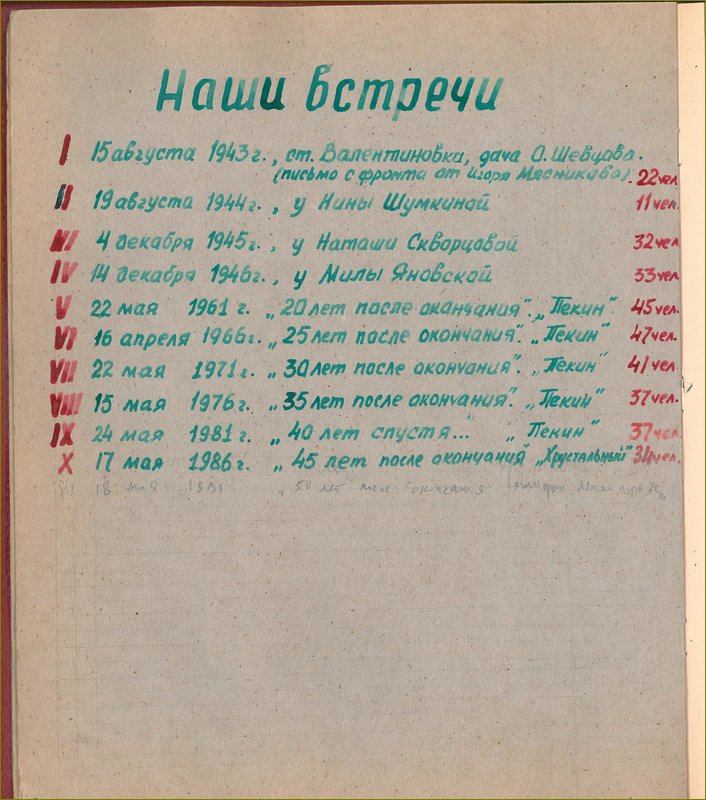 Наши встречи
I 15 августа 1943 г., ст. Валентиновка, дача О. Шевцова.
(письмо с фронта от Игоря Мясникова). 22 чел.
II 19 августа 1944 г., у Нины Шумкиной 11 чел.
III 4 декабря 1945 г., у Наташи Скворцовой 32 чел.
IV 14 декабря 1946 г., у Милы Яновской 33 чел.
V 22 мая 1961 г. „20 лет после окончания". „Пекин". 45 чел.
VI 16 апреля 1966 г. „25 лет после окончания". „Пекин" 47 чел.
VII 22 мая 1971 г. „30 лет после окончания". „Пекин" 41 чел.
VIII 15 мая 1976 г. „35 лет после окончания". „Пекин" 37 чел.
IX 24 мая 1981 г. „40 лет спустя..." „Пекин" 37 чел.
X 17 мая 1986 г. „45 лет после окончания" „Хрустальный" 34 чел.
18 мая 1991 „50 лет после окончания"